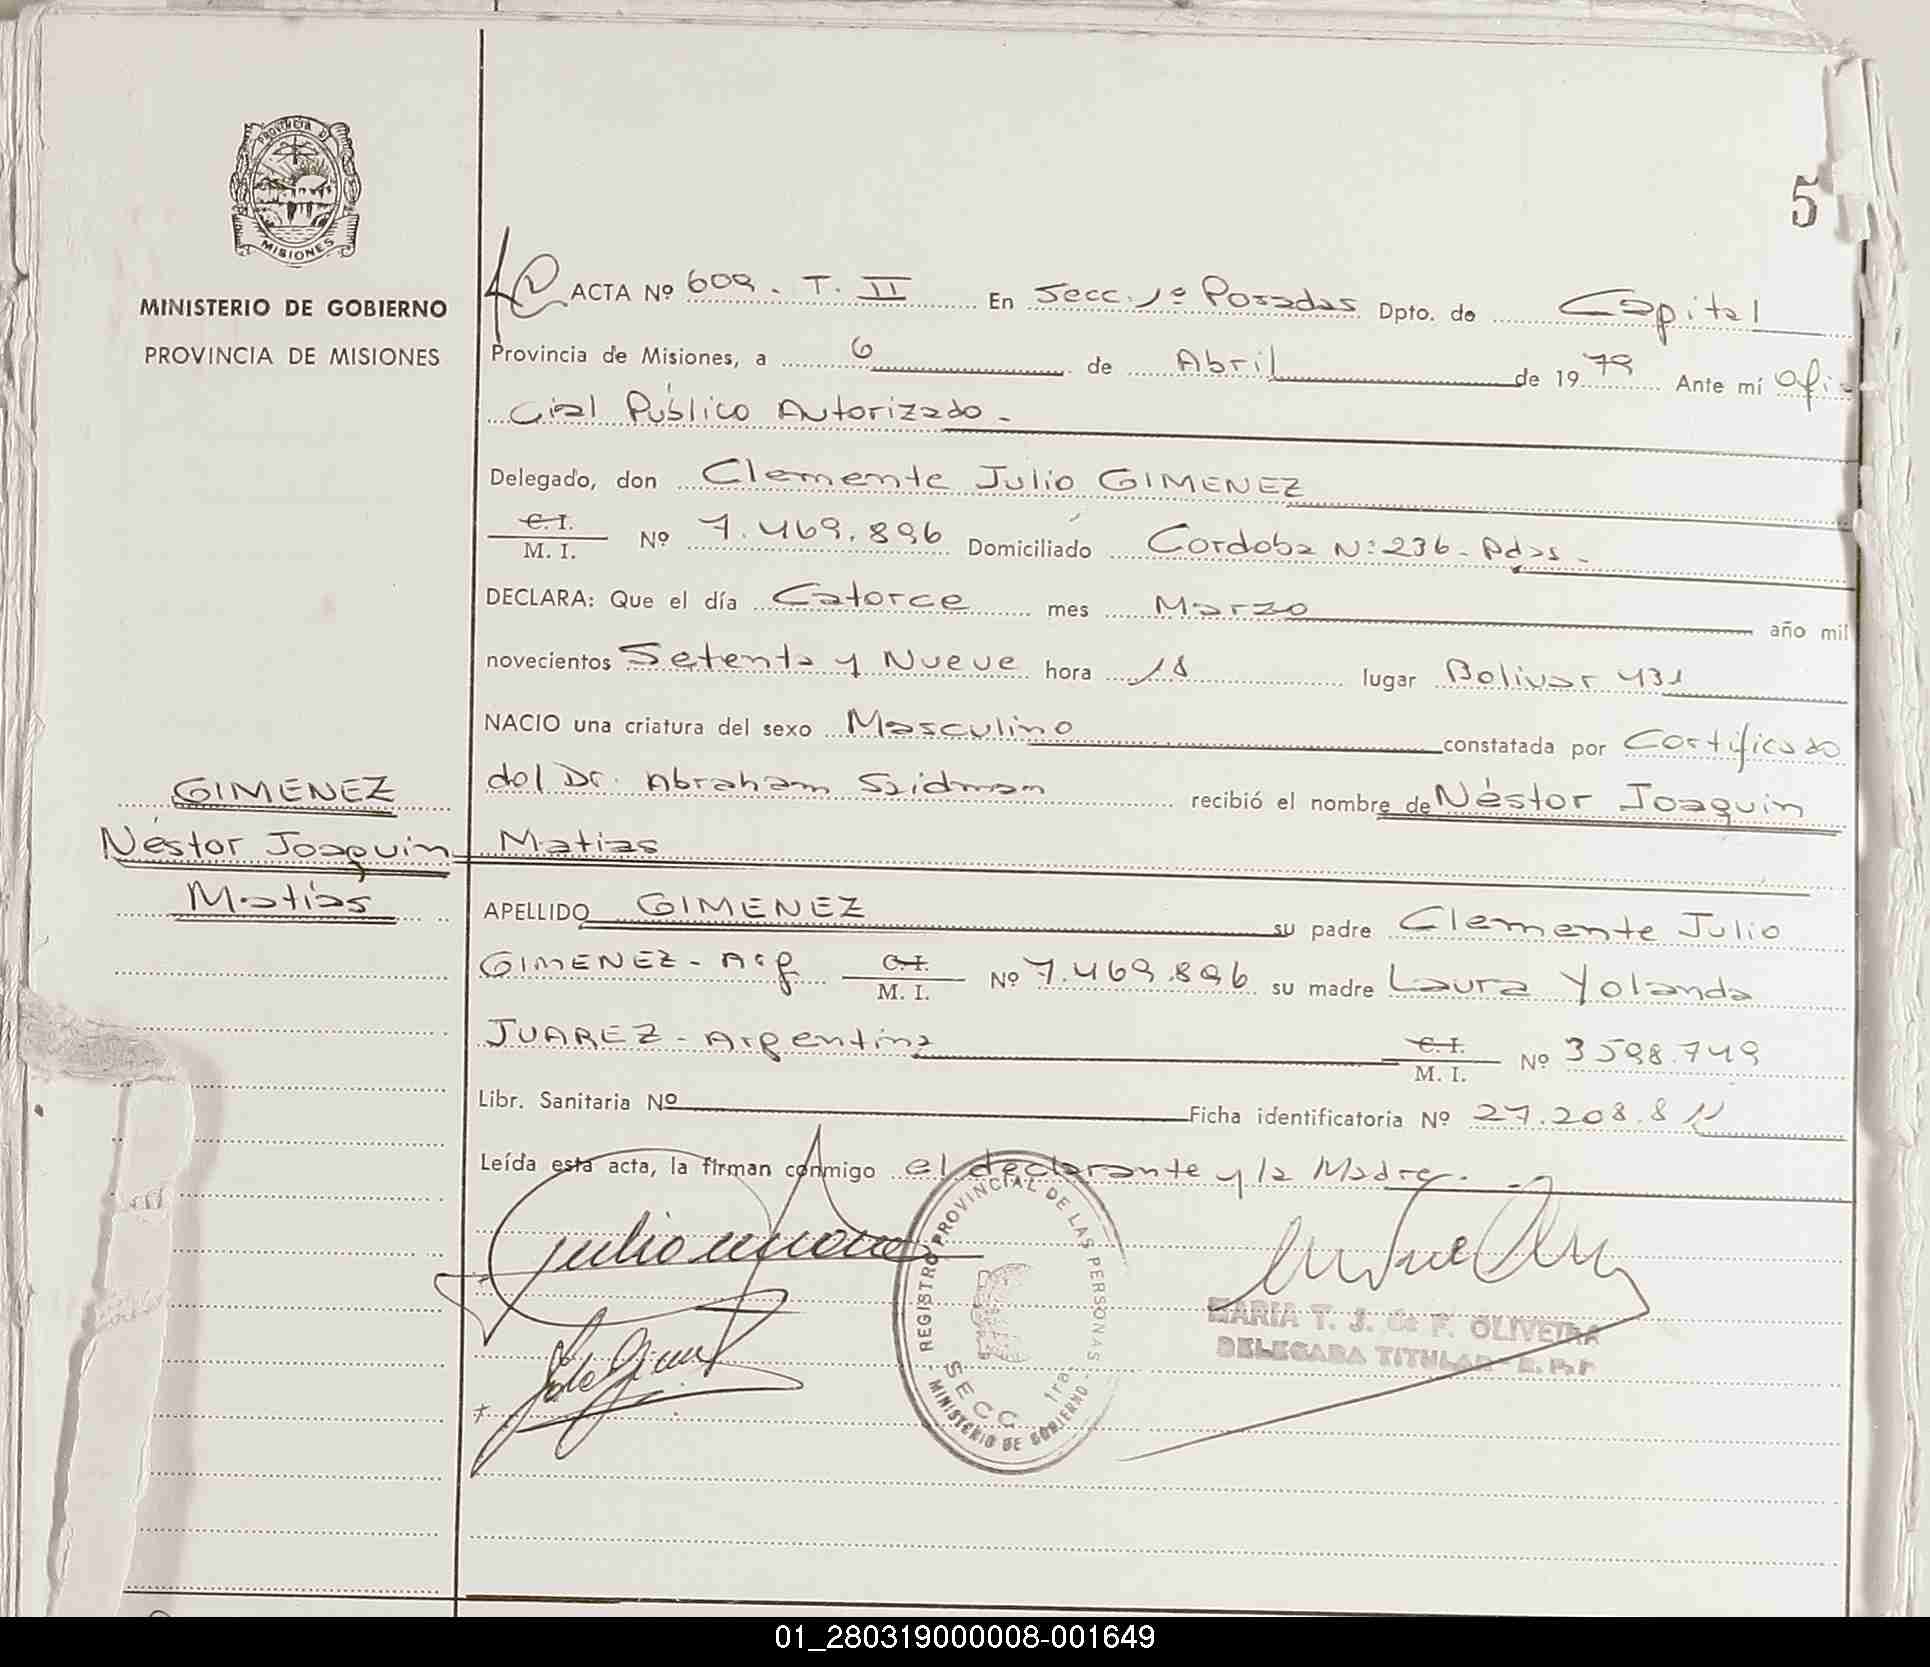 5
PROVINCIA DE
MISIONES
MINISTERIO DE GOBIERNO
PROVINCIA DE MISIONES
ACTA Nº 609. T. II En Secc. 1º Posadas Dpto. de Capital
Provincia de Misiones, a 6 de Abril de 1979 Ante mí Ofi-
cial Público Autorizado.
Delegado, don Clemente Julio GIMENEZ
C.I.
M. I. Nº 7.469.896 Domiciliado Cordoba Nº 236. Pdas.
DECLARA: Que el día Catorce mes Marzo año mil
novecientos Setenta y Nueve hora 18 lugar Bolivar 431
NACIO una criatura del sexo Masculino constatada por Certificado
del Dr. Abraham Szidman recibió el nombre de Néstor Joaquin
Matias
GIMENEZ
Néstor Joaquin
Matías
APELLIDO GIMENEZ su padre Clemente Julio
GIMENEZ - Arg C.I.
M. I. Nº 7.469.896 su madre Laura Yolanda
JUAREZ - Argentina C.I.
M. I. Nº 3598.749
Libr. Sanitaria Nº Ficha identificatoria Nº 27.208.811
Leída esta acta, la firman conmigo el declarante y la Madre.
REGISTRO PROVINCIAL DE LAS PERSONAS
SECC 1ra
MINISTERIO DE GOBIERNO
MARIA T. J. de F. OLIVEIRA
DELEGADA TITULAR - R. P. P
01_280319000008-001649